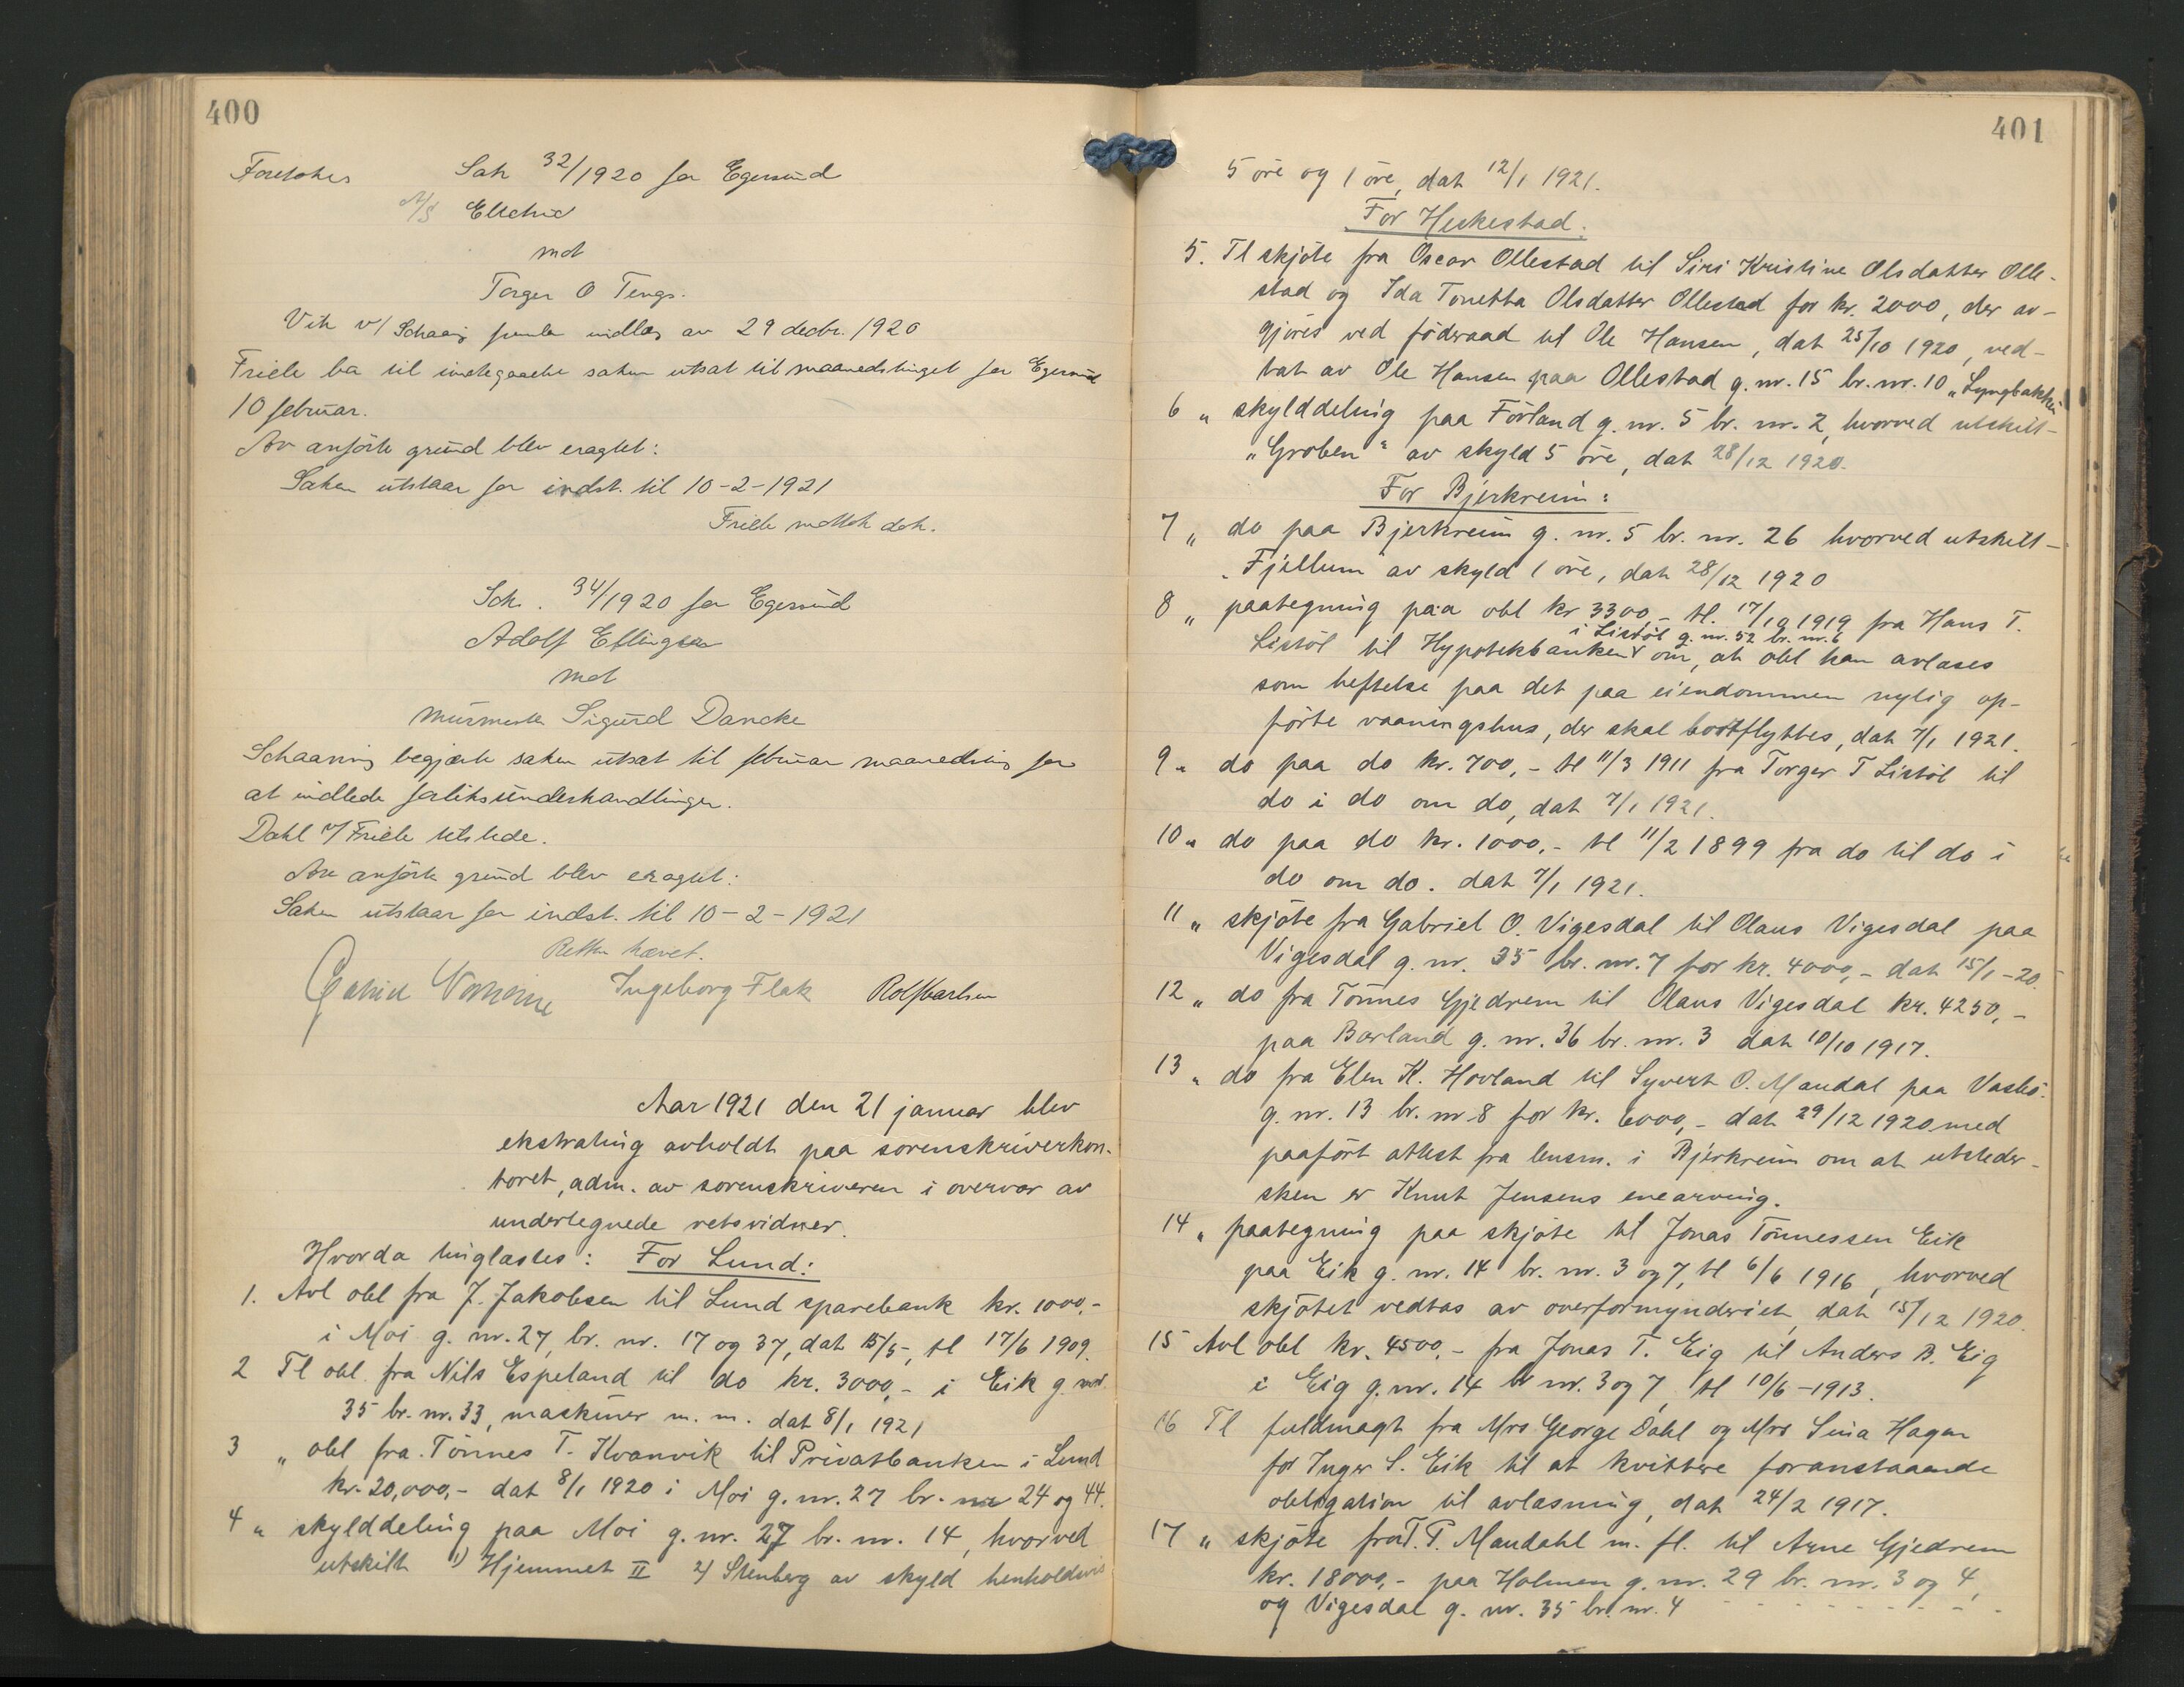 400
Foretokes Sak 32/1920 for Egersund
A/S Electric
mot
Torger O Tengs.
Vik v/ Schaaning indlæg av 29 decbr. 1920
Friele ba til imøtegaaelse saken utsat til maanedstinget for Egersund
10 februar.
Av anførte grund blev eragtet:
Saken utstaar for indst. til 10-2-1921
Friele mottok dok.
Sak. 34/1920 for Egersund
Adolf Ellingsen
mot
murmester Sigurd Dancke
Schaaning begjærte saken utsat til februar maanedsting for
at indlede forliksunderhandlinger.
Dahl v/ Friele tilstede.
Av anførte grund blev eragtet:
Saken utstaar for indst. til 10-2-1921
Retten hævet.
Ingeborg Flak Rolf Carlsen
Aar 1921 den 21 januar blev
ekstrating avholdt paa sorenskriverkon-
toret, adm. av sorenskriveren i overvær av
undertegnede retsvidner.
Hvorda tinglæstes: For Lund:
1. Avl obl fra J. Jakobsen til Lund sparebank kr. 1000,-
i Moi g. nr. 27, br. nr. 17 og 37, dat 15/5-, tl 17/6 1909.
2 Tl obl. fra Nils Espeland til do kr. 3000,- i Eik g. nr.
35 br. nr. 33, maskiner m. m. dat 8/1 1921
3 „ obl fra Tönnes T. Kvanvik til Privatbanken i Lund
kr. 20,000,- dat 8/1 1920 i Moi g. nr. 27 br. nr 24 og 44.
4 „ skylddeling paa Moi g. nr. 27 br. nr. 14, hvorved
utskilt 1) Hjemmet II 2) Stenberg av skyld henholdsvis
401
5 öre og 1 öre, dat 12/1 1921.
For Heskestad.
5. Tl skjöte fra Oscar Ollestad til Siri Kristine Olsdatter Olle-
stad og Ida Tonetta Olsdatter Ollestad for kr. 2000, der av-
gjöres ved föderaad til Ole Hansen, dat 25/10 1920, ved-
tat av Ole Hansen paa Ollestad g. nr. 15 br. nr. 10 „Lyngbakken
6 „ skylddeling paa Förland g. nr. 5 br. nr. 2, hvorved utskilt-
„Groben“ av skyld 5 öre, dat 28/12 1920.
For Bjerkreim:
7 „ do paa Bjerkreim g. nr. 5 br. nr. 26 hvorved utskilt-
„Fjellum av skyld 1 öre, dat 28/12 1920
8 „ paategning paa obl kr 3300,- tl. 17/10 1919 fra Hans T.
i Listöl g. nr. 52 br. nr. 6
Listöl til Hypotekbanken om, at obl kan avlæses
som heftelse paa det paa eiendommen nylig op-
förte vaaningshus, der skal bortflyttes, dat 7/1 1921.
9 „ do paa do kr. 700,- tl 11/3 1911 fra Torger T Listöl til
do i do om do, dat 7/1 1921.
10 „ do paa do kr. 1000,- tl 11/2 1899 fra do til do i
do om do. dat 7/1 1921.
11 „ skjöte fra Gabriel O. Vigesdal til Olaus Vigesdal paa
Vigesdal g. nr. 35 br. nr. 7 for kr. 4000,- dat 15/1-20.
12 „ do fra Tönnes Gjedrem til Olaus Vigesdal kr. 4250,-
paa Börland g. nr. 36 br. nr. 3 dat 10/10 1917.
13 „ do fra Elen K. Hovland til Syvert O. Maudal paa Vasbö.
g. nr. 13 br. nr 8 for kr. 6000,- dat 29/12 1920 med
paafört attest fra lensm. i Bjerkreim om at utsteder-
sken er Knut Jensens enearving.
14 „ paategning paa skjöte til Jonas Tönnessen Eik
paa Eik g. nr. 14 br. nr. 3 og 7, tl 6/6 1916, hvorved
skjötet vedtas av overformynderiet, dat 15/12 1920.
15 Avl obl kr. 4500,- fra Jonas T. Eig til Anders B. Eig
i Eig g. nr. 14 br nr. 3 og 7, tl 10/6-1913.
16 Tl fuldmagt fra Mrs George Dahl og Mrs Sina Hagan
for Inger S. Eik til at kvittere foranstaaende
obligation til avlæsning, dat 24/2 1917.
17 „ skjöte fra T. P. Maudahl m. fl. til Arne Gjedrem
kr. 18000,- paa Holmen g. nr. 29 br. nr. 3 og 4,
og Vigesdal g. nr. 35 br. nr. 4